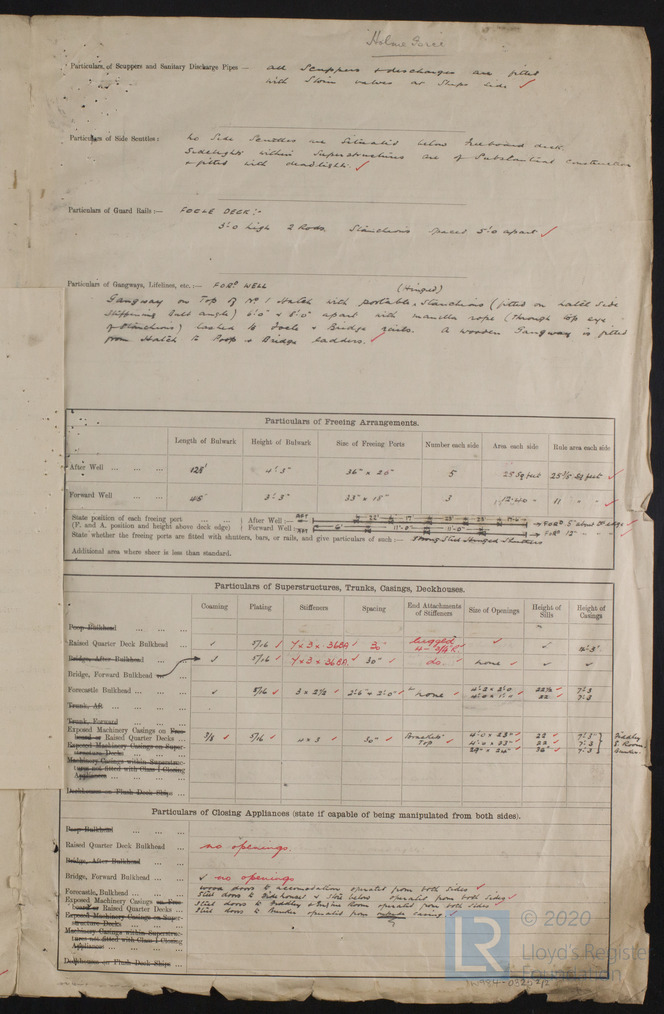 Holme Force
Particulars of Scuppers and Sanitary Discharge Pipes — all Scuppers & discharges are fitted
with Storm valves at Ships side ✓
Particulars of Side Scuttles: No Side Scuttles are Situated below freeboard deck.
Sidelights within Superstructures are of Substantial construction
& fitted with deadlights. ✓
Particulars of Guard Rails:— FOCLE DECK:-
3'.0 high 2 Rods. Stanchions spaced 5'.0 apart ✓
Particulars of Gangways, Lifelines, etc.:— FORD WELL (Hinged)
Gangway on Top of No 1 Hatch with portable, stanchions (fitted on hatch side
stiffening bulb angle) 6'0" & 8'.0" apart with manilla rope (through top eye
of stanchions) lashed to Focle & Bridge rails. A wooden Gangway is fitted
from Hatch to Poop & Bridge ladders. ✓
Particulars of Freeing Arrangements.
Length of Bulwark Height of Bulwark Size of Freeing Ports Number each side Area each side Rule area each side
After Well ... ... ... 128' 4'.3" 36" x 20" 5 25 Sq feet 25.5 Sq feet ✓
Forward Well ... ... 48' 3'.3" 33" x 18" 3 12.40 " 11 " " ✓
State position of each freeing port ... ... After Well:— AFT 22' 17' 23' 23' → FORD 5" above Dk edge ✓
(F. and A. position and height above deck edge) Forward Well:— AFT 6' 11'-0" → FORD 12" " "
State whether the freeing ports are fitted with shutters, bars, or rails, and give particulars of each:— Strong Steel Hinged Shutters
Additional area where sheer is less than standard.
Particulars of Superstructures, Trunks, Casings, Deckhouses.
Coaming Plating Stiffeners Spacing End Attachments of Stiffeners Size of Openings Height of Sills Height of Casings
Poop Bulkhead ... ... ...
Raised Quarter Deck Bulkhead ... ✓ 5/16 ✓ 7 x 3 x .36BA ✓ 30 lugged ✓ ✓ 4'.3"
Bridge, After Bulkhead ... ... ✓ 5/16 ✓ 7 x 3 x .36BA ✓ 30" ✓ do. ✓ none ✓ ✓ ✓
Bridge, Forward Bulkhead ...
Forecastle Bulkhead ... ... ... ✓ 5/16 ✓ 3 x 2½ ✓ 2'.6" x 2'.0" ✓ none ✓ 4'.2 x 2'.0 ✓ 22½ ✓ 7'.3
22 7'.3
Trunk, Aft ... ... ...
Trunk, Forward ... ... ...
Exposed Machinery Casings on Free-
board or Raised Quarter Decks ... 3/8 ✓ 5/16 ✓ 4 x 3 ✓ 30" ✓ Brackets Top ✓ 4'.0 x 23" ✓ 22 ✓ 7'.3" Fiddley
Exposed Machinery Casings on Super-
structure Decks ... ... 4'.0 x 23" ✓ 22 ✓ 7'.3 E. Room
Machinery Casings within Superstruc-
tures not fitted with Class I Closing
Appliances ... ... ... 29" x 30" ✓ 30" ✓ 7'.3 Bunker
Deckhouses on Flush Deck Ships ...
Particulars of Closing Appliances (state if capable of being manipulated from both sides).
Poop Bulkhead ... ... ...
Raised Quarter Deck Bulkhead ... no openings.
Bridge, After Bulkhead ... ...
Bridge, Forward Bulkhead ... ✓ no openings
Forecastle, Bulkhead ... ... ... Wood doors to accomodation operated from both sides ✓
Steel doors to & Store below operated from both sides ✓
Exposed Machinery Casings on Free-
board or Raised Quarter Decks ... Steel doors to Fiddley & Engine Room operated from both sides ✓
Exposed Machinery Casings on Super-
structure Decks ... ... Steel doors to Bunker operated from outside casing. ✓
Machinery Casings within Superstruc-
tures not fitted with Class I Closing
Appliances ... ... ...
Deckhouses on Flush Deck Ships ...
© 2020
LR
Lloyd's Register
Foundation